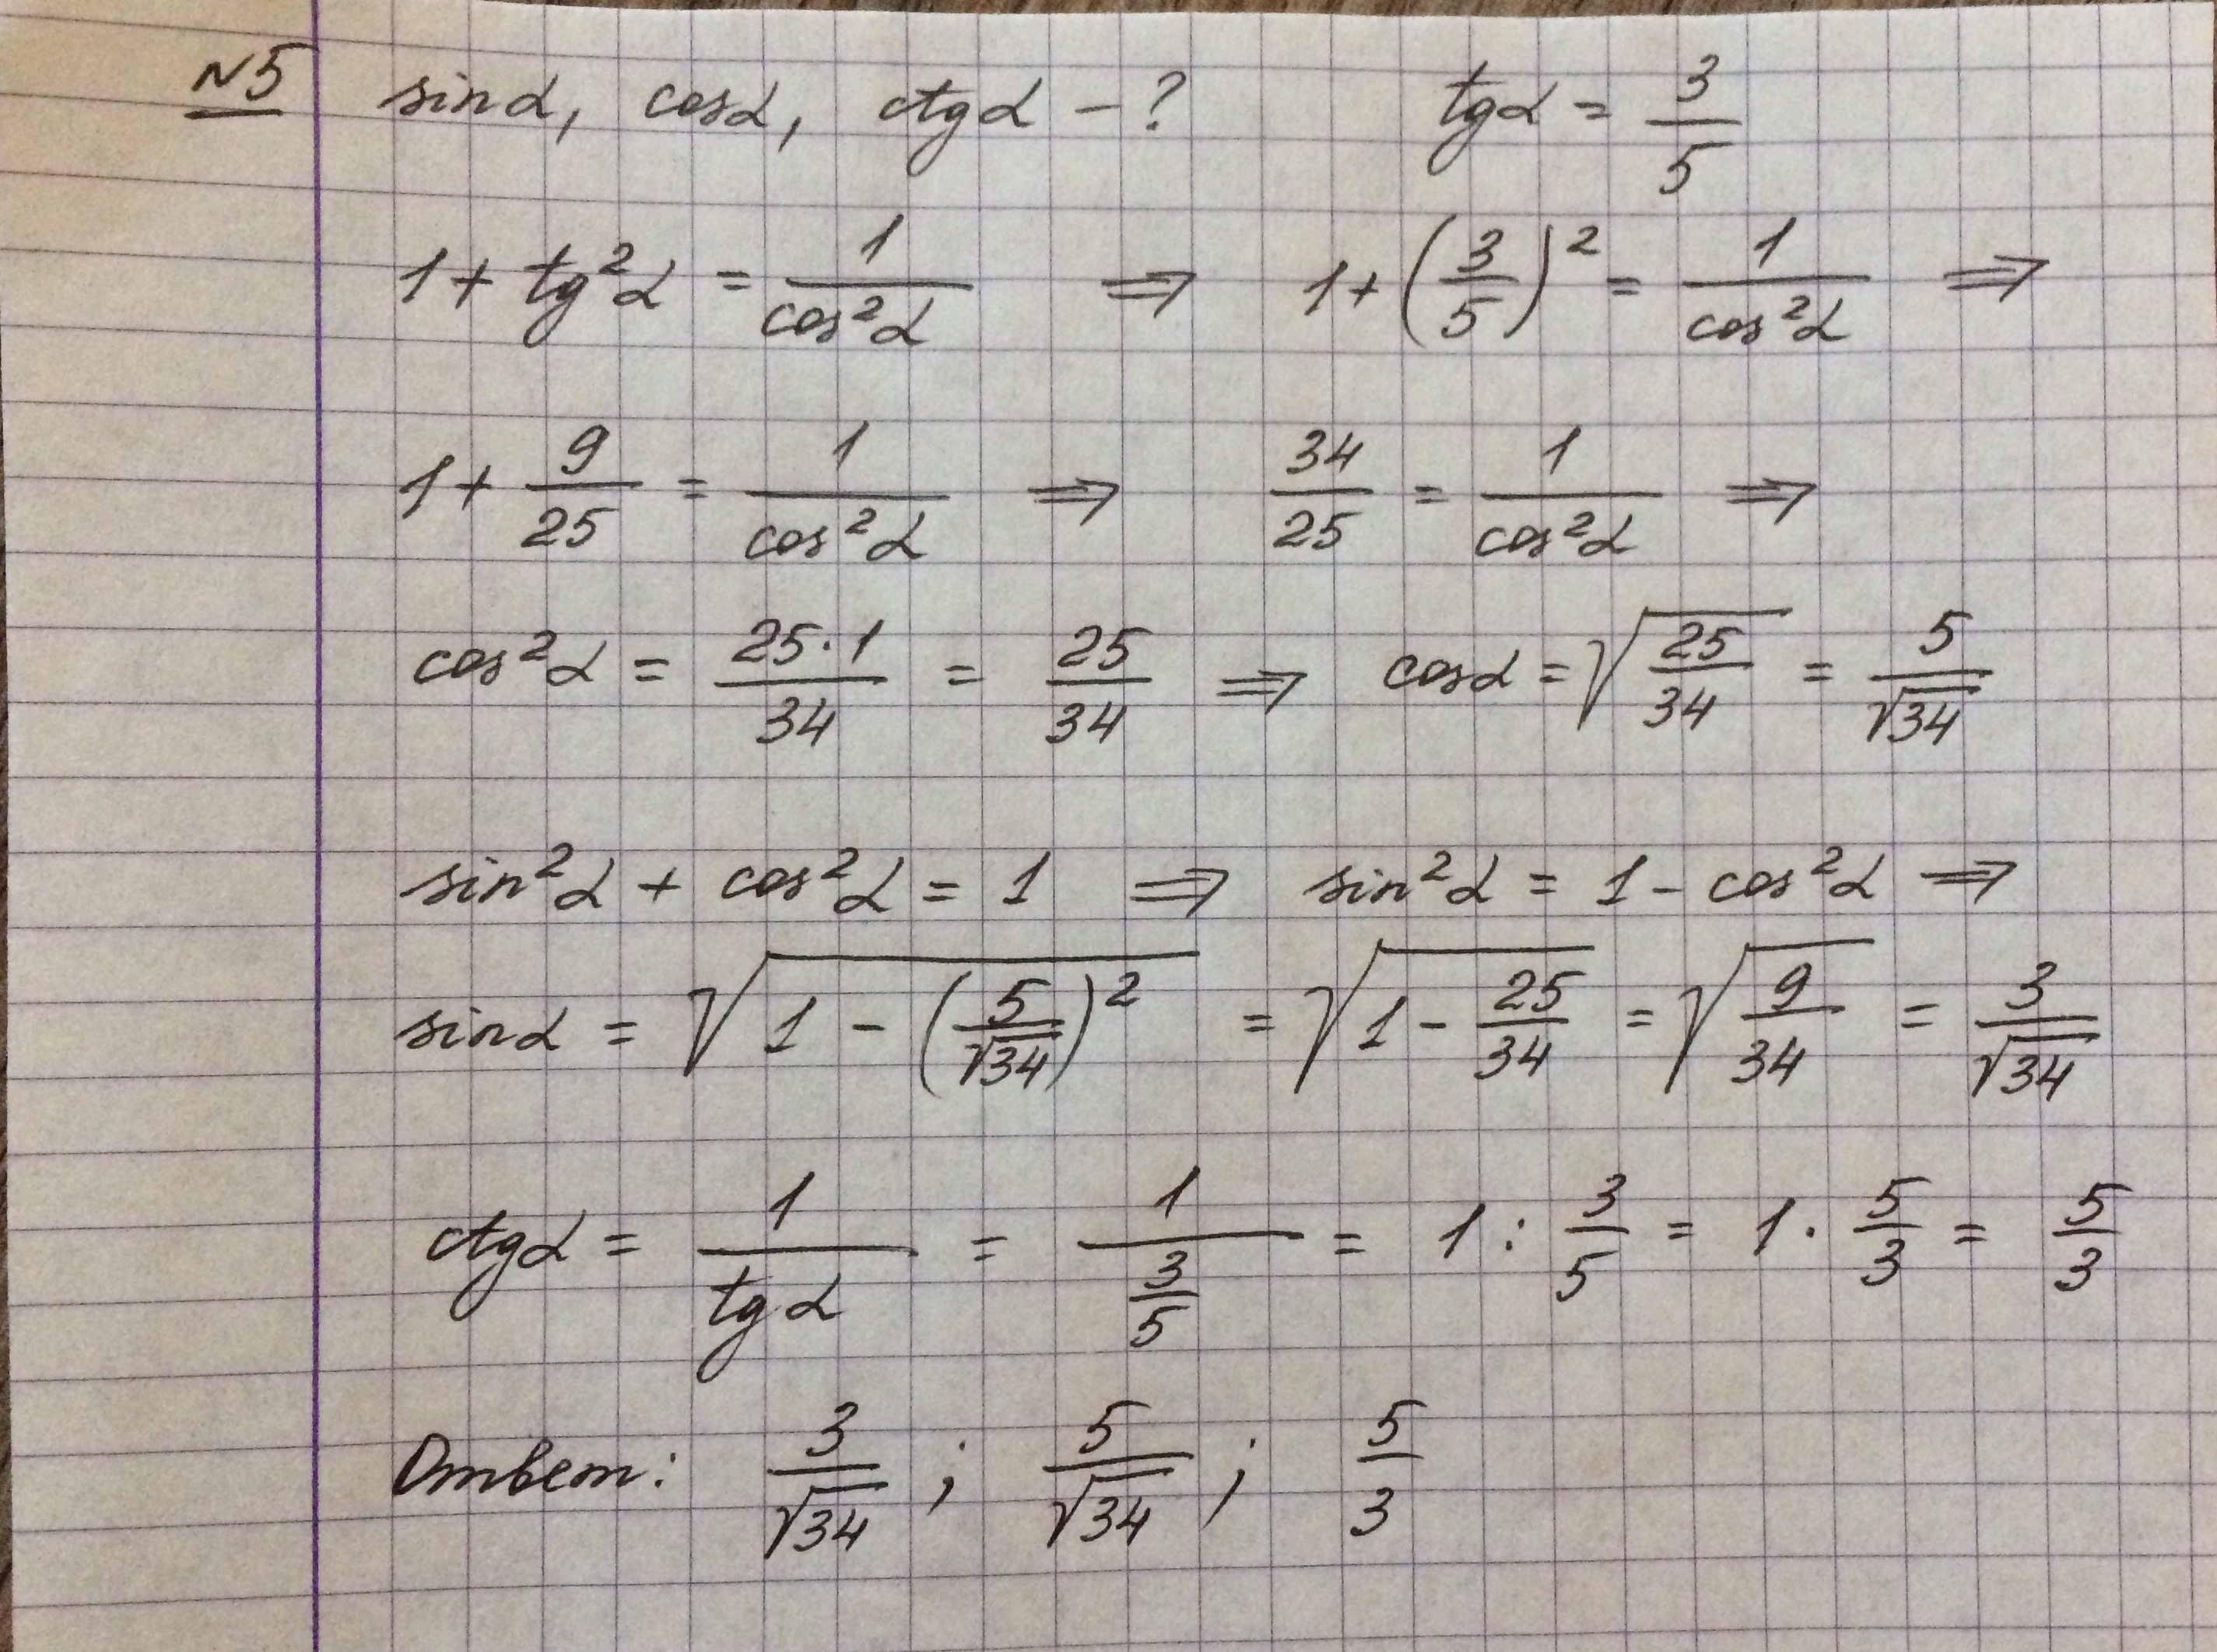 N5 sinα, cosα, ctgα - ? tgα = 3/5
1 + tg²α = 1/cos²α ⇒ 1 + (3/5)² = 1/cos²α ⇒
1 + 9/25 = 1/cos²α ⇒ 34/25 = 1/cos²α ⇒
cos²α = 25·1/34 = 25/34 ⇒ cosα = √(25/34) = 5/√34
sin²α + cos²α = 1 ⇒ sin²α = 1 - cos²α ⇒
sinα = √(1 - (5/√34)²) = √(1 - 25/34) = √(9/34) = 3/√34
ctgα = 1/tgα = 1/(3/5) = 1 : 3/5 = 1 · 5/3 = 5/3
Ответ: 3/√34 ; 5/√34 ; 5/3